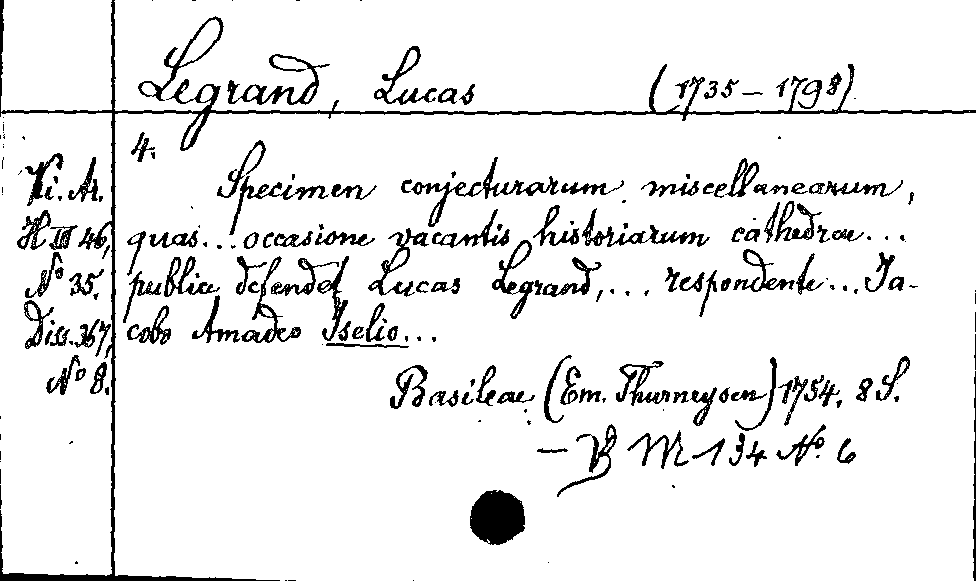 Legrand, Lucas (1735 – 1798)
4.
Ki. Ar.
H III 46,
No 35.
Diss. 367,
No 8.
Specimen conjecturarum miscellanearum,
quas... occasione vacantis historiarum cathedrae...
publice defendet Lucas Legrand,... respondente... Ja-
cobo Amadeo Iselio...
Basileae (Em. Thurneysen) 1754. 8 S.
– B M 134 No. 6